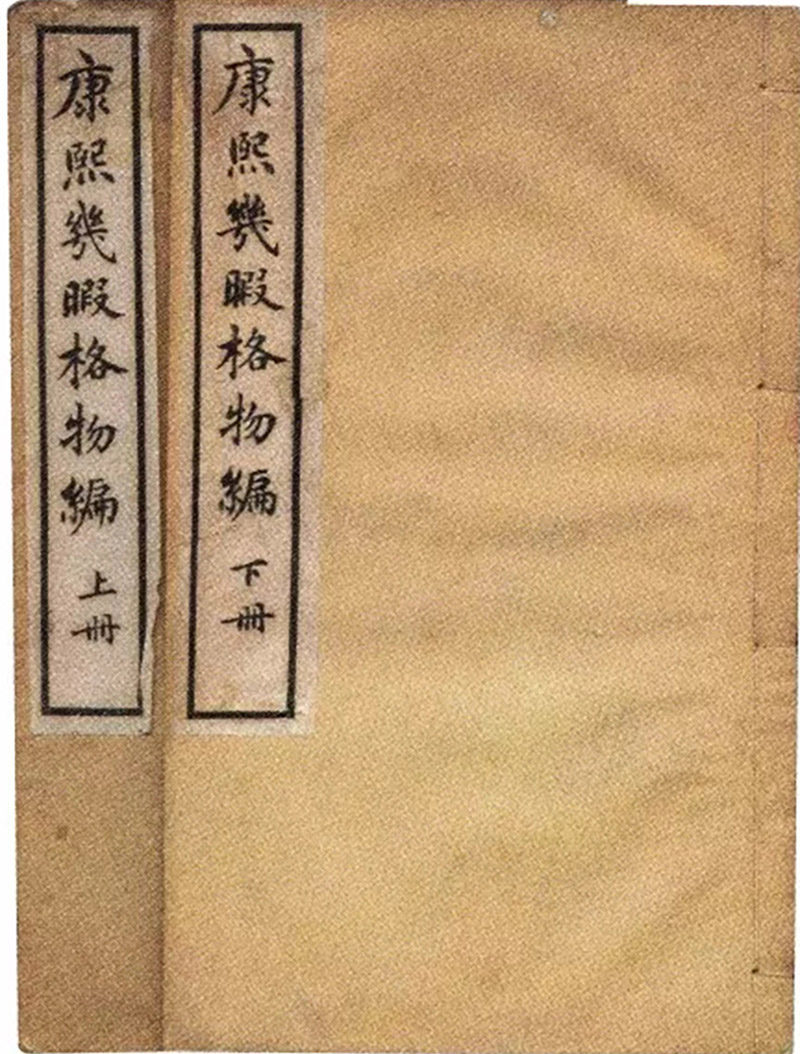 康熙幾暇格物編 下冊
康熙幾暇格物編 上冊